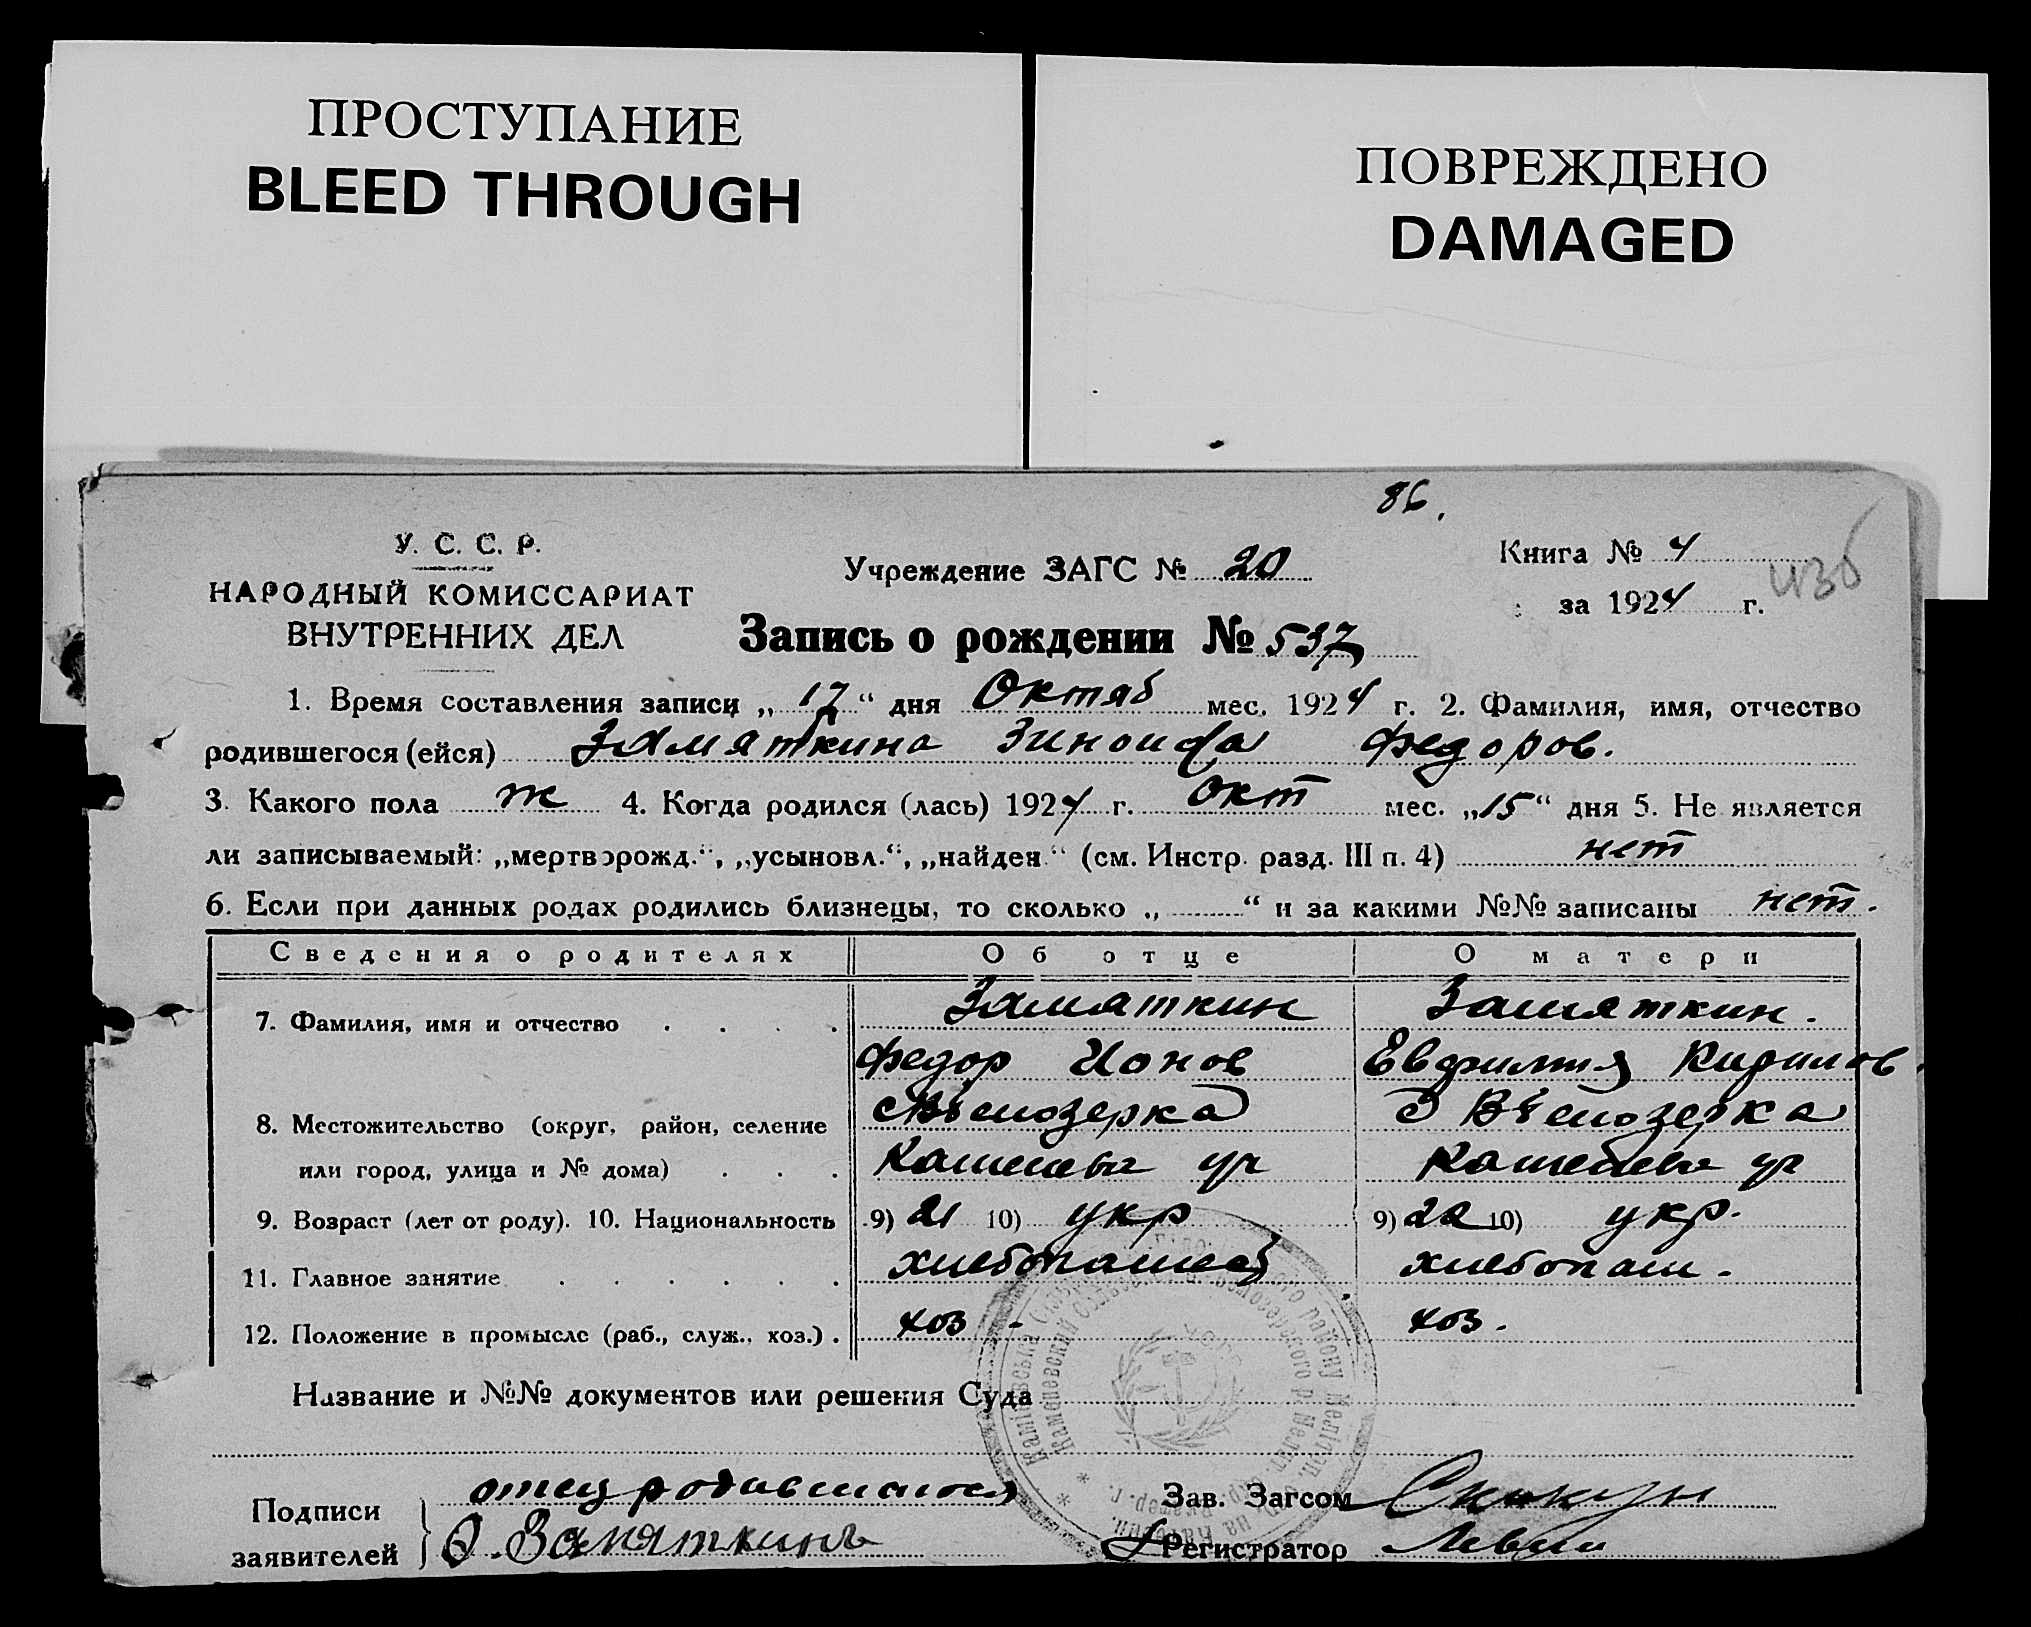 ПРОСТУПАНИЕ
BLEED THROUGH
ПОВРЕЖДЕНО
DAMAGED
86.
У. С. С. Р.
НАРОДНЫЙ КОМИССАРИАТ
ВНУТРЕННИХ ДЕЛ
Учреждение ЗАГС № 20
Книга № 4
за 1924 г.
Запись о рождении № 537
1. Время составления записи „ 17 “ дня Октяб мес. 1924 г. 2. Фамилия, имя, отчество
родившегося (ейся) Замяткина Зиноида Федоров.
3. Какого пола ж 4. Когда родился (лась) 1924 г. окт мес. „15“ дня 5. Не является
ли записываемый: „мертворожд.“, „усыновл.“, „найден.“ (см. Инстр. разд. III п. 4) нет
6. Если при данных родах родились близнецы, то сколько „ “ и за какими №№ записаны нет.
Сведения о родителях Об отце О матери
7. Фамилия, имя и отчество Замяткин Замяткин.
Федор Ионов Евфимия Кирилов
8. Местожительство (округ, район, селение
или город, улица и № дома)
9. Возраст (лет от роду). 10. Национальность 9) 21 10) укр 9) 22 10) укр.
11. Главное занятие хлебопашец хлебопаш.
12. Положение в промысле (раб., служ., хоз.) хоз - хоз.
Название и №№ документов или решения Суда
Подписи
заявителей
отец родившагося
Ѳ. Замяткинъ
Зав. Загсом
Регистратор